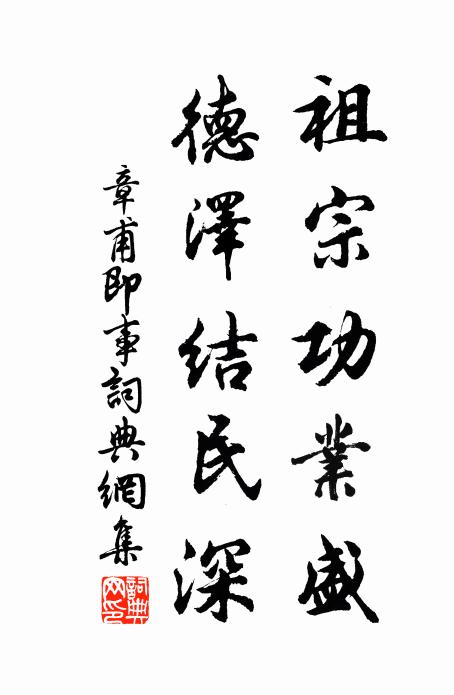 祖宗功業盛
德澤結民深
章甫即事詞典網集
詞典網印